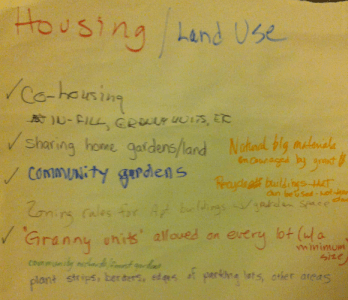 Housing / Land Use
✓ Co-housing
IN-FILL, GROUP UNITS, ETC
✓ Sharing home gardens/land
Natural bldg materials
encouraged by grant
✓ COMMUNITY gardens
buildings
Zoning rules for Apt buildings w/ garden space
✓ "Granny units" allowed on every lot (w/ a
minimum
size)
plant strips, borders, edges of parking lots, other areas